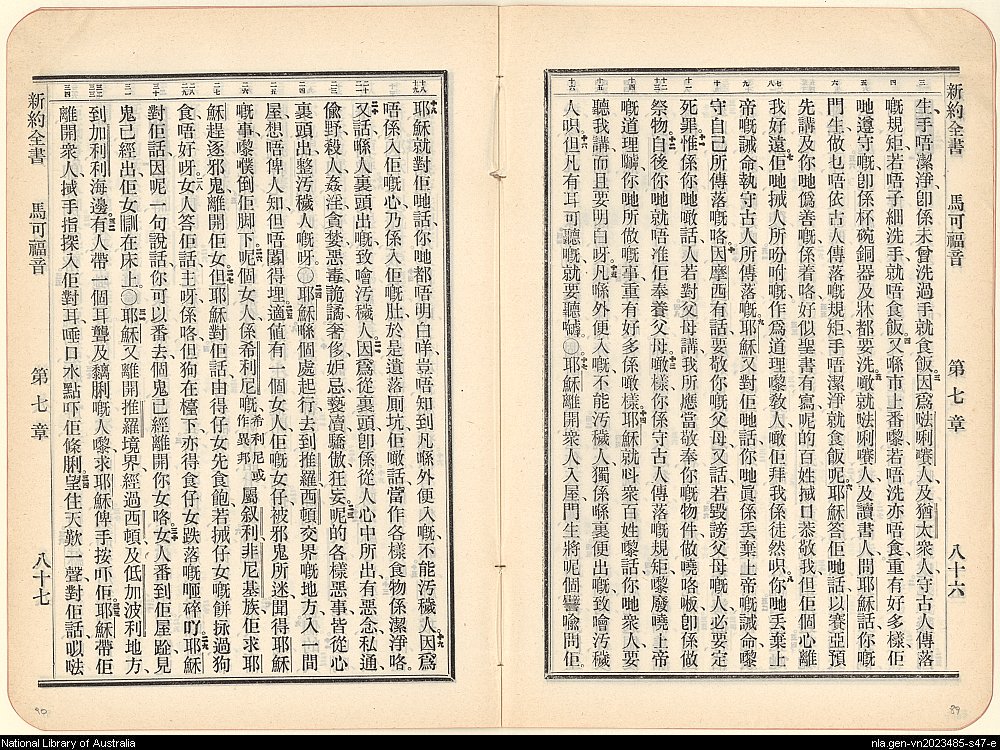 新約全書 馬可福音 第七章 八十六
生手唔潔淨卽係未曾洗過手就食飯因爲𠵽唎嚽人及猶太衆人守古人傳落
嘅規矩若唔子細洗手就唔食飯又喺市上番嚟若唔洗亦唔食重有好多樣佢
哋遵守嘅卽係杯碗銅器及牀都要洗噉就𠵽唎嚽人及讀書人問耶穌話你嘅
門生做乜唔依古人傳落嘅規矩手唔潔淨就食飯呢耶穌答佢哋話以賽亞預
先講及你哋僞善嘅係着咯好似聖書有寫呢的百姓搣口㳟敬我但佢個心離
我好遠佢哋搣人所吩咐嘅作爲道理嚟敎人噉佢拜我係徒然唄你哋丢棄上
帝嘅誡命執守古人所傳落嘅耶穌又對佢哋話你哋眞係丢棄上帝嘅誡命嚟
守自己所傳落嘅咯因摩西有話要敬你嘅父母又話若毀謗父母嘅人必要定
死罪惟係你哋噉話人若對父母講我所應當敬奉你嘅物件做嘵咯㗎卽係做
祭物自後你哋就唔准佢奉養父母噉樣你係守古人傳落嘅規矩嚟廢嘵上帝
嘅道理嚹你哋所做嘅事重有好多係噉樣耶穌就呌衆百姓嚟話你哋衆人要
聽我講而且要明白呀凡喺外便入嘅不能汚穢人獨係喺裏便出嘅致噲汚穢
人唄但凡有耳可聽嘅就要聽嚹○耶穌離開衆人入屋門生將呢個譬喻問佢
耶穌就對佢哋話你哋都唔明白咩豈唔知到凡喺外便入嘅不能汚穢人因爲
唔係入佢嘅心乃係入佢嘅肚於是遺落厠坑佢噉話當作各樣食物係潔淨咯
又話喺人裏頭出嘅致噲汚穢人因爲從裏頭卽係從人心中所出有惡念私通
偸野殺人姦淫貪婪惡毒詭譎奢侈妒忌褻凟驕傲狂妄呢的各樣惡事皆從心
裏頭出整汚穢人嘅呀○耶穌喺個處起行去到推羅西頓交界嘅地方入一間
屋想唔俾人知但唔匿得埋適値有一個女人佢嘅女仔被邪鬼所迷聞得耶穌
嘅事嚟僕倒佢脚下呢個女人係希利尼嘅希利尼或作異邦屬叙利非尼基族佢求耶
穌趕逐邪鬼離開佢女但耶穌對佢話由得仔女先食飽若搣仔女嘅餅𢫏過狗
食唔好呀女人答佢話主呀係咯但狗在檯下亦得食仔女跌落嘅嘥碎吖耶穌
對佢話因呢一句說話你可以番去個鬼已經離開你女咯女人番到佢屋睇見
鬼已經出佢女瞓在床上○耶穌又離開推羅境界經過西頓及低加波利地方
到加利利海邊有人帶一個耳聾及黐脷嘅人嚟求耶穌俾手按吓佢耶穌帶佢
離開衆人搣手指探入佢對耳唾口水點吓佢條脷望住天歎一聲對佢話㕽𠵽
新約全書 馬可福音 第七章 八十七
89
90
National Library of Australia
nla.gen-vn2023485-s47-e